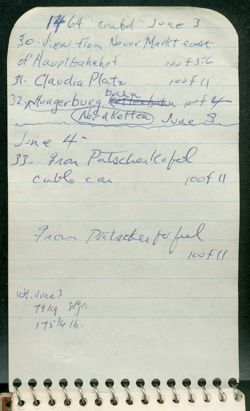 1464 contd June 3
30. View from Neuer Markt east
of Hauptbahnhof 100 f 5.6
31. Claudia Platz 100 f 11
32. Hungerburg bahn 100 f
(Nordketten) June 3
June 4 -
33- From Patscherkofel
cable car 100 f 11
From Patscherkofel
100 f 11
wt. June 3
79 kg
175 3/4 lb.